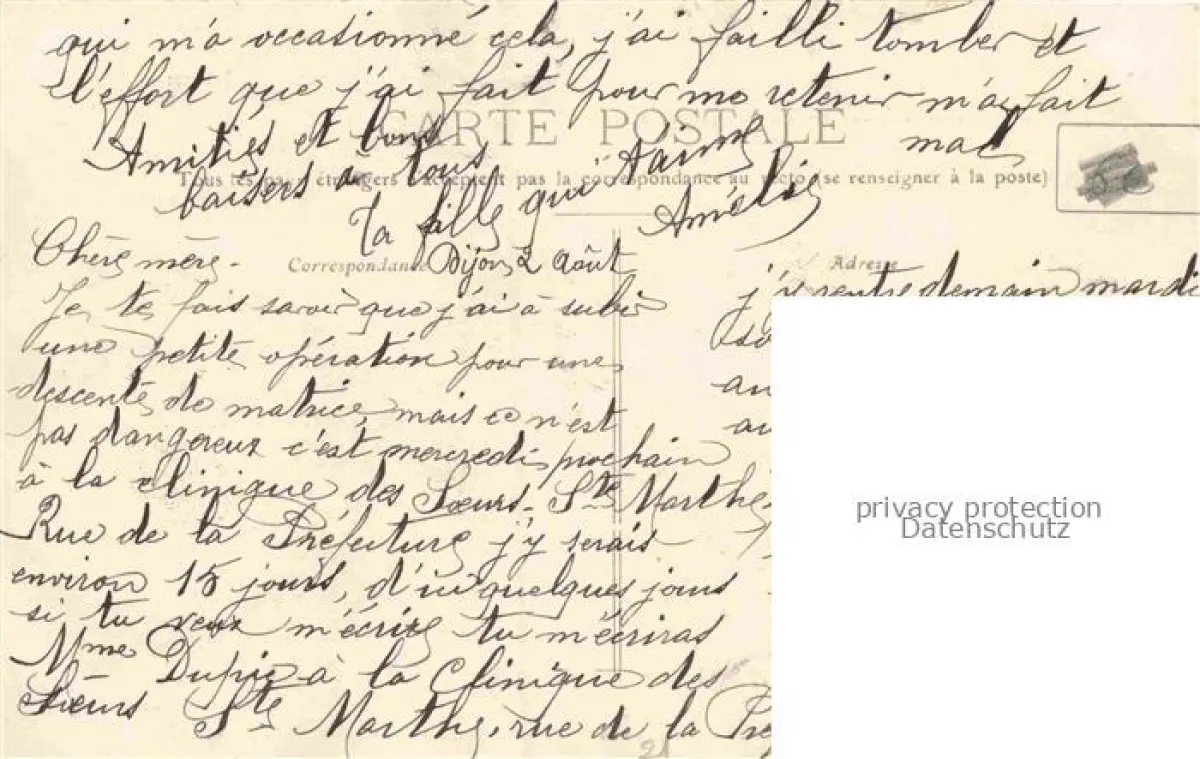 qui m'a occasionné cela, j'ai failli tomber et
l'effort que j'ai fait pour me retenir m'a fait
mal
CARTE POSTALE
Amitiés et bons
baisers à tous
Ta fille qui t'aime
Amélie
Tous les pays étrangers n'acceptent pas la correspondance au recto (se renseigner à la poste)
Correspondance
Dijon, 2 Août
Chère mère.
Je te fais savoir que j'ai à subir
une petite opération pour une
descente de matrice, mais ce n'est
pas dangereux c'est mercredi prochain
à la clinique des Sœurs. Ste Marthe.
Rue de la Préfecture j'y serais
environ 15 jours, d'ici quelques jours
si tu veux m'écrire tu m'écriras
Mme Dupie à la Clinique des
Sœurs Ste Marthe, rue de la Pré
Adresse
j'y rentre demain mardi
so
au
au
privacy protection
Datenschutz
21